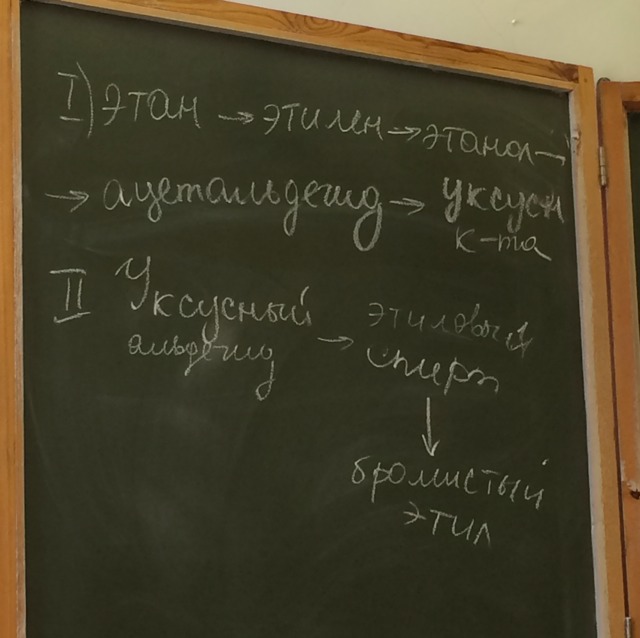 I) этан → этилен → этанол →
→ ацетальдегид → уксусн
к-та
II Уксусный → этиловый
альдегид спирт
↓
бромистый
этил